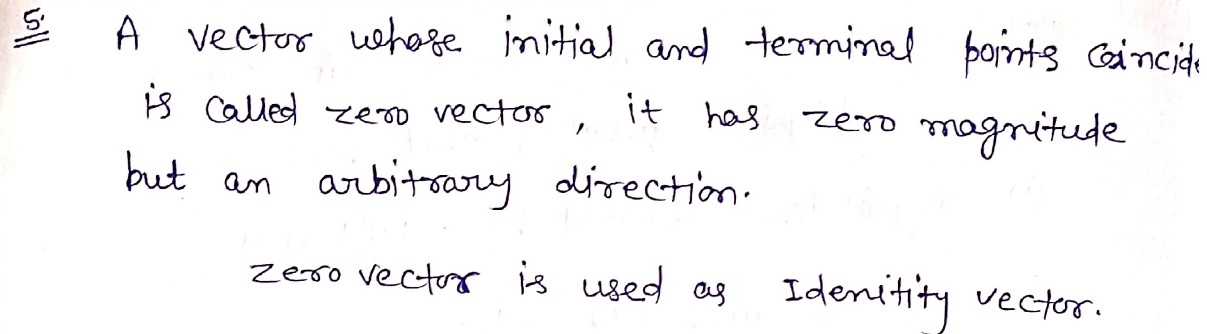 5. A vector whose initial and terminal points coincide
is called zero vector, it has zero magnitude
but an arbitrary direction.
zero vector is used as Idenitity vector.